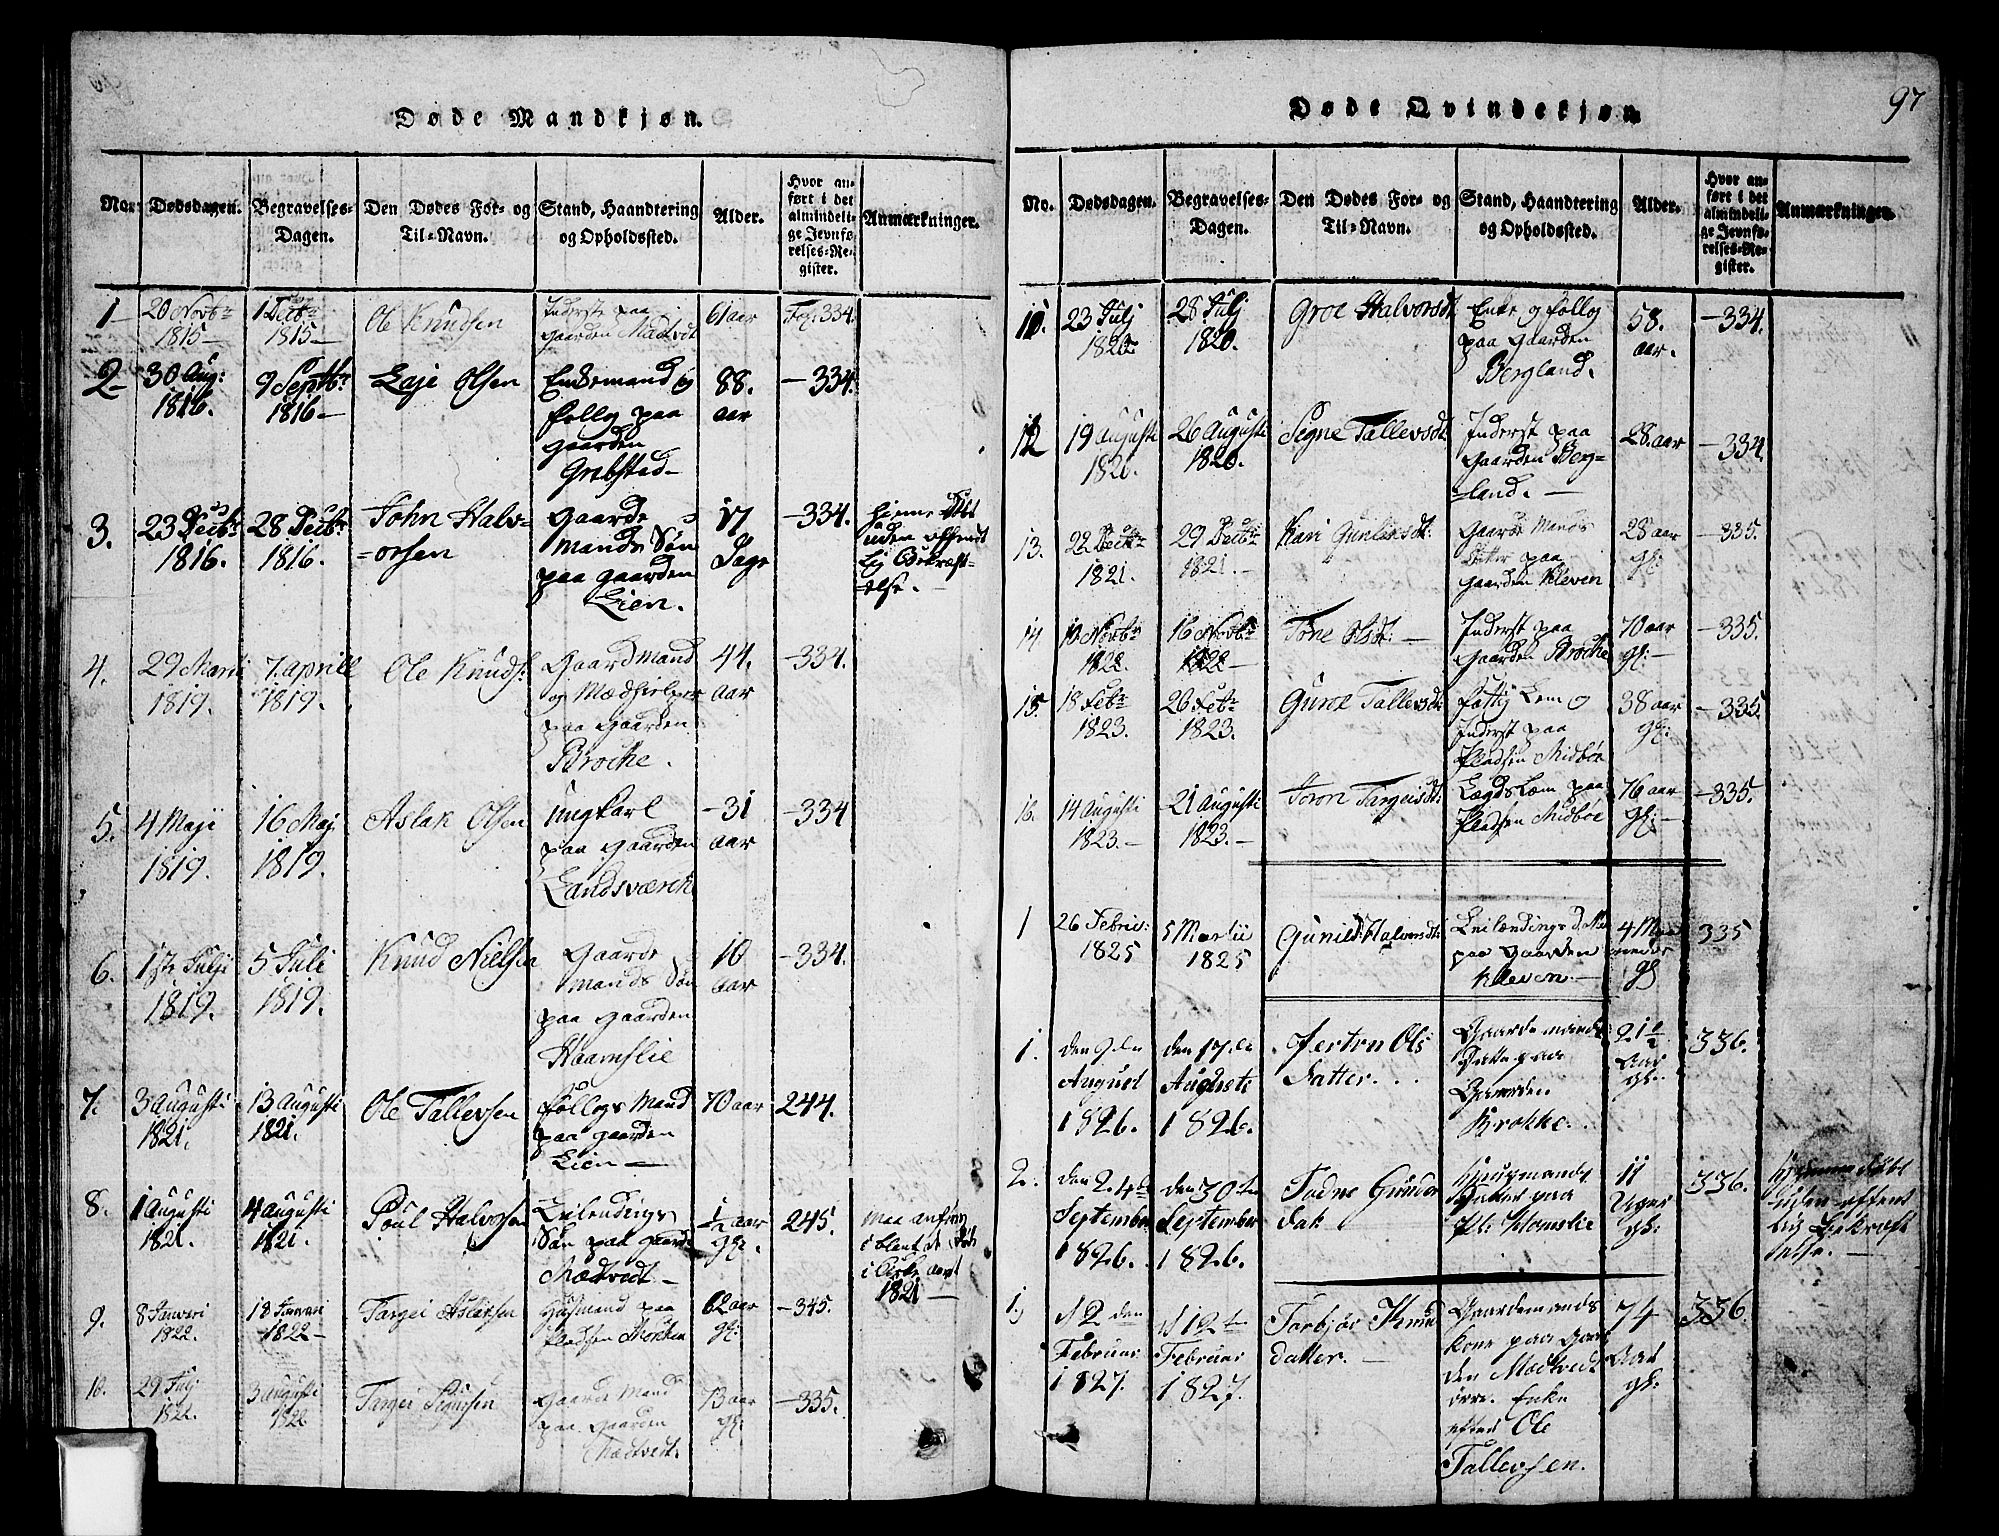 97
Døde Mandkjøn.
No. Dødsdagen. Begravelses-Dagen. Den Dødes For- og Til-Navn. Stand, Haandtering og Opholdssted. Alder. Hvor anført i det almindelige Jevnførelses-Register. Anmærkninger.
1 20 Novbr 1815 1 Decbr 1815 Ole Knudsen Inderst paa Gaarden Madtvedt 61 aar Fol. 334.
2 30 Aug: 1816. 9 Septbr 1816 Laje Olsen Enkemand og follog paa gaarden Grebstad 88. aar 334.
3. 23 Decbr 1816. 28 Decbr 1816. John Halvorsen Gaardemands Søn paa gaarden Lien. 17 Dage 334. hjemme døbt uden offentlig Bekræftelse.
4. 29 Martii 1819. 7. aprill 1819. Ole Knuds: Gaardmand og Medhielper paa Gaarden Brocke. 44. aar 334.
5. 4 Maji 1819. 16 Maj. 1819. Aslak Olsen Ungkarl paa Gaarden Landsværck 31 aar 334
6. 1ste Julji 1819. 5 Juli 1819. Knud Nielsen Gaardemands Søn paa Gaarden Haamslie 10 aar 334.
7. 3 Augusti 1821. 13 Augusti 1821. Ole Tallevsen follogs Mand paa gaarden Lien 70 aar 244.
8. 1 Augusti 1821. 4 Augusti 1821. Poul Halvorsen Leilendings Søn paa gaarden Madtvedt ½ aar gl. 245. maa anføres iblant de døde i Kirke aaret 1821
9. 8 Januari 1822. 18 Januari 1822 Targei Aslaksen Huusmand paa pladsen Morken 62 aar gl: 345.
10. 29 Julj 1822. 3 Augusti 1822 Targei Sigursen Gaarde Mand paa Gaarden Madtvedt. 73 aar gl. 335.
Døde Qvindekjøn.
No. Dødsdagen. Begravelses-Dagen. Den Dødes For- og Til-Navn. Stand, Haandtering og Opholdssted. Alder. Hvor anført i det almindelige Jevnførelses-Register. Anmærkninger.
11. 23 Julj 1820. 28 Julj 1820. Groe Halvorsdt Enke og follog paa Gaarden Bergland. 58. aar. 334.
12 19 Augusti 1820. 26 Augusti 1820. Signe Tallevsdt: Inderst paa Gaarden Bergland. 28 aar 334
13. 22 Decbr 1821. 29 Decbr 1821. Kari Gunlevsdt: Gaarde Mands Datter paa Gaarden Kleven 28 aar gl: 335.
14. 10 Novbr 1822. 16 Novbr 1822 Tone Olsdt: Inderst paa Gaarden Brocke 70 aar gl: 335.
15. 18 Febr 1823. 26 Febr 1823. Gune Tallevsdt: fattig Lem og Inderst paa Pladsen Midbøe 38 aar gl: 335.
16. 14 Augusti 1823. 21 Augusti 1823. Joron Targeisdt: Lægdslem paa Pladsen Midbøe 76 aar gl: 335.
1 26 Febru: 1825 5 Martii 1825 Gunild Halvorsdt: Leilændings Datter paa Gaarden Kleven 4 Maaneder gl 335
1. den 9de August 1826. den 17de Augusti 1826. Jertru Ols Datter. Gaardemands Datter paa Gaarden Brokke. 21½ Aar gl. 336.
2. den 24de September 1826. den 30te September 1826. Tadne Gunder dat Huusmands Datter paa Pl. Homslie 11 Uger gl: 336. hjemme døbt uden offentlig Bekræftelse.
1. d 2den Februar 1827. d 12te Februar 1827. Torbjør Knud datter. Gaardemands kone paa Gaarden Madtvedt øvre. Enke efter Ole Tallevsen. 74 Aar gl: 336.